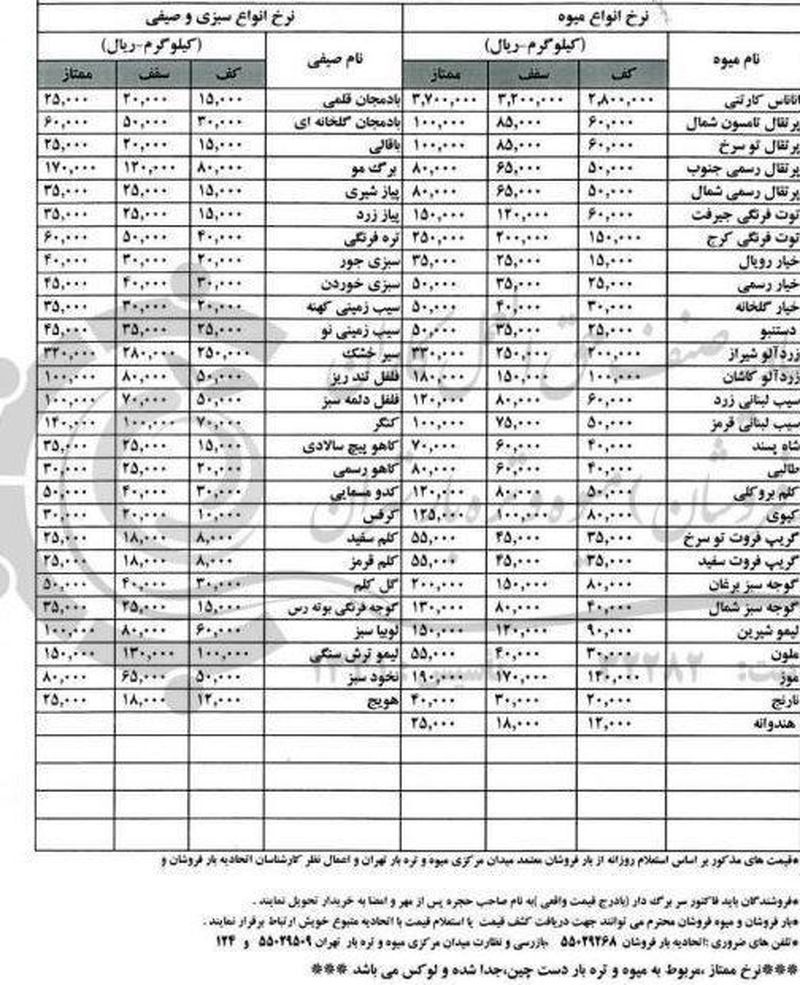 نرخ انواع میوه نرخ انواع سبزی و صیفی
نام میوه (کیلوگرم-ریال) نام صیفی (کیلوگرم-ریال)
کف سقف ممتاز کف سقف ممتاز
اناناس کارتنی ۲,۸۰۰,۰۰۰ ۳,۲۰۰,۰۰۰ ۳,۷۰۰,۰۰۰ بادمجان قلمی ۱۵,۰۰۰ ۲۰,۰۰۰ ۲۵,۰۰۰
پرتقال تامسون شمال ۶۰,۰۰۰ ۸۵,۰۰۰ ۱۰۰,۰۰۰ بادمجان گلخانه ای ۳۰,۰۰۰ ۵۰,۰۰۰ ۶۰,۰۰۰
پرتقال تو سرخ ۶۰,۰۰۰ ۸۵,۰۰۰ ۱۰۰,۰۰۰ باقالی ۱۵,۰۰۰ ۲۰,۰۰۰ ۲۵,۰۰۰
پرتقال رسمی جنوب ۵۰,۰۰۰ ۶۵,۰۰۰ ۸۰,۰۰۰ برگ مو ۸۰,۰۰۰ ۱۲۰,۰۰۰ ۱۷۰,۰۰۰
پرتقال رسمی شمال ۵۰,۰۰۰ ۶۵,۰۰۰ ۸۰,۰۰۰ پیاز شیری ۱۵,۰۰۰ ۲۵,۰۰۰ ۳۵,۰۰۰
توت فرنگی جیرفت ۶۰,۰۰۰ ۱۲۰,۰۰۰ ۱۵۰,۰۰۰ پیاز زرد ۱۵,۰۰۰ ۲۵,۰۰۰ ۳۵,۰۰۰
توت فرنگی کرج ۱۵۰,۰۰۰ ۲۰۰,۰۰۰ ۲۵۰,۰۰۰ تره فرنگی ۴۰,۰۰۰ ۵۰,۰۰۰ ۶۰,۰۰۰
خیار رویال ۱۵,۰۰۰ ۲۵,۰۰۰ ۳۵,۰۰۰ سبزی جور ۲۰,۰۰۰ ۳۰,۰۰۰ ۴۰,۰۰۰
خیار رسمی ۲۵,۰۰۰ ۳۵,۰۰۰ ۵۰,۰۰۰ سبزی خوردن ۳۰,۰۰۰ ۴۰,۰۰۰ ۴۵,۰۰۰
خیار گلخانه ۳۰,۰۰۰ ۴۰,۰۰۰ ۵۰,۰۰۰ سیب زمینی کهنه ۲۰,۰۰۰ ۳۰,۰۰۰ ۳۵,۰۰۰
دستنبو ۲۵,۰۰۰ ۳۵,۰۰۰ ۵۰,۰۰۰ سیب زمینی نو ۲۵,۰۰۰ ۳۵,۰۰۰ ۴۵,۰۰۰
زردآلو شیراز ۲۰۰,۰۰۰ ۲۵۰,۰۰۰ ۳۳۰,۰۰۰ سیر خشک ۲۵۰,۰۰۰ ۲۸۰,۰۰۰ ۳۲۰,۰۰۰
زردآلو کاشان ۱۰۰,۰۰۰ ۱۵۰,۰۰۰ ۱۸۰,۰۰۰ فلفل تند ریز ۵۰,۰۰۰ ۸۰,۰۰۰ ۱۰۰,۰۰۰
سیب لبنانی زرد ۶۰,۰۰۰ ۸۰,۰۰۰ ۱۲۰,۰۰۰ فلفل دلمه سبز ۵۰,۰۰۰ ۷۰,۰۰۰ ۱۰۰,۰۰۰
سیب لبنانی قرمز ۵۰,۰۰۰ ۷۵,۰۰۰ ۱۰۰,۰۰۰ کنگر ۷۰,۰۰۰ ۱۰۰,۰۰۰ ۱۴۰,۰۰۰
شاه پسند ۴۰,۰۰۰ ۶۰,۰۰۰ ۷۰,۰۰۰ کاهو پیچ سالادی ۱۵,۰۰۰ ۲۵,۰۰۰ ۳۵,۰۰۰
طالبی ۴۰,۰۰۰ ۶۰,۰۰۰ ۸۰,۰۰۰ کاهو رسمی ۲۰,۰۰۰ ۲۵,۰۰۰ ۳۰,۰۰۰
کلم بروکلی ۵۰,۰۰۰ ۸۰,۰۰۰ ۱۲۰,۰۰۰ کدو مسمایی ۳۰,۰۰۰ ۴۰,۰۰۰ ۵۰,۰۰۰
کیوی ۸۰,۰۰۰ ۱۰۰,۰۰۰ ۱۲۵,۰۰۰ کرفس ۱۰,۰۰۰ ۲۰,۰۰۰ ۳۰,۰۰۰
گریپ فروت تو سرخ ۳۵,۰۰۰ ۴۵,۰۰۰ ۵۵,۰۰۰ کلم سفید ۸,۰۰۰ ۱۸,۰۰۰ ۲۵,۰۰۰
گریپ فروت سفید ۳۵,۰۰۰ ۴۵,۰۰۰ ۵۵,۰۰۰ کلم قرمز ۸,۰۰۰ ۱۸,۰۰۰ ۲۵,۰۰۰
گوجه سبز برغان ۸۰,۰۰۰ ۱۵۰,۰۰۰ ۲۰۰,۰۰۰ گل کلم ۳۰,۰۰۰ ۴۰,۰۰۰ ۵۰,۰۰۰
گوجه سبز شمال ۴۰,۰۰۰ ۸۰,۰۰۰ ۱۳۰,۰۰۰ گوجه فرنگی بوته رس ۱۵,۰۰۰ ۲۵,۰۰۰ ۳۵,۰۰۰
لیمو شیرین ۹۰,۰۰۰ ۱۲۰,۰۰۰ ۱۵۰,۰۰۰ لوبیا سبز ۶۰,۰۰۰ ۸۰,۰۰۰ ۱۰۰,۰۰۰
ملون ۳۰,۰۰۰ ۴۰,۰۰۰ ۵۵,۰۰۰ لیمو ترش سنگی ۱۰۰,۰۰۰ ۱۳۰,۰۰۰ ۱۵۰,۰۰۰
موز ۱۴۰,۰۰۰ ۱۷۰,۰۰۰ ۱۹۰,۰۰۰ نخود سبز ۵۰,۰۰۰ ۶۵,۰۰۰ ۸۰,۰۰۰
نارنج ۲۰,۰۰۰ ۳۰,۰۰۰ ۴۰,۰۰۰ هویج ۱۲,۰۰۰ ۱۸,۰۰۰ ۲۵,۰۰۰
هندوانه ۱۲,۰۰۰ ۱۸,۰۰۰ ۲۵,۰۰۰
*قیمت های مذکور بر اساس استعلام روزانه از بار فروشان معتمد میدان مرکزی میوه و تره بار تهران و اعمال نظر کارشناسان اتحادیه بار فروشان و
*فروشندگان باید فاکتور سر برگ دار (بادرج قیمت واقعی )به نام صاحب حجره پس از مهر و امضا به خریدار تحویل نمایند .
*بار فروشان و میوه فروشان محترم می توانند جهت دریافت کشف قیمت یا استعلام قیمت با اتحادیه متبوع خویش ارتباط برقرار نمایند .
*تلفن های ضروری :اتحادیه بار فروشان ۵۵۰۲۹۲۶۸ بازرسی و نظارت میدان مرکزی میوه و تره بار تهران ۵۵۰۲۹۵۰۹ و ۱۲۴
***نرخ ممتاز ،مربوط به میوه و تره بار دست چین،جدا شده و لوکس می باشد ***